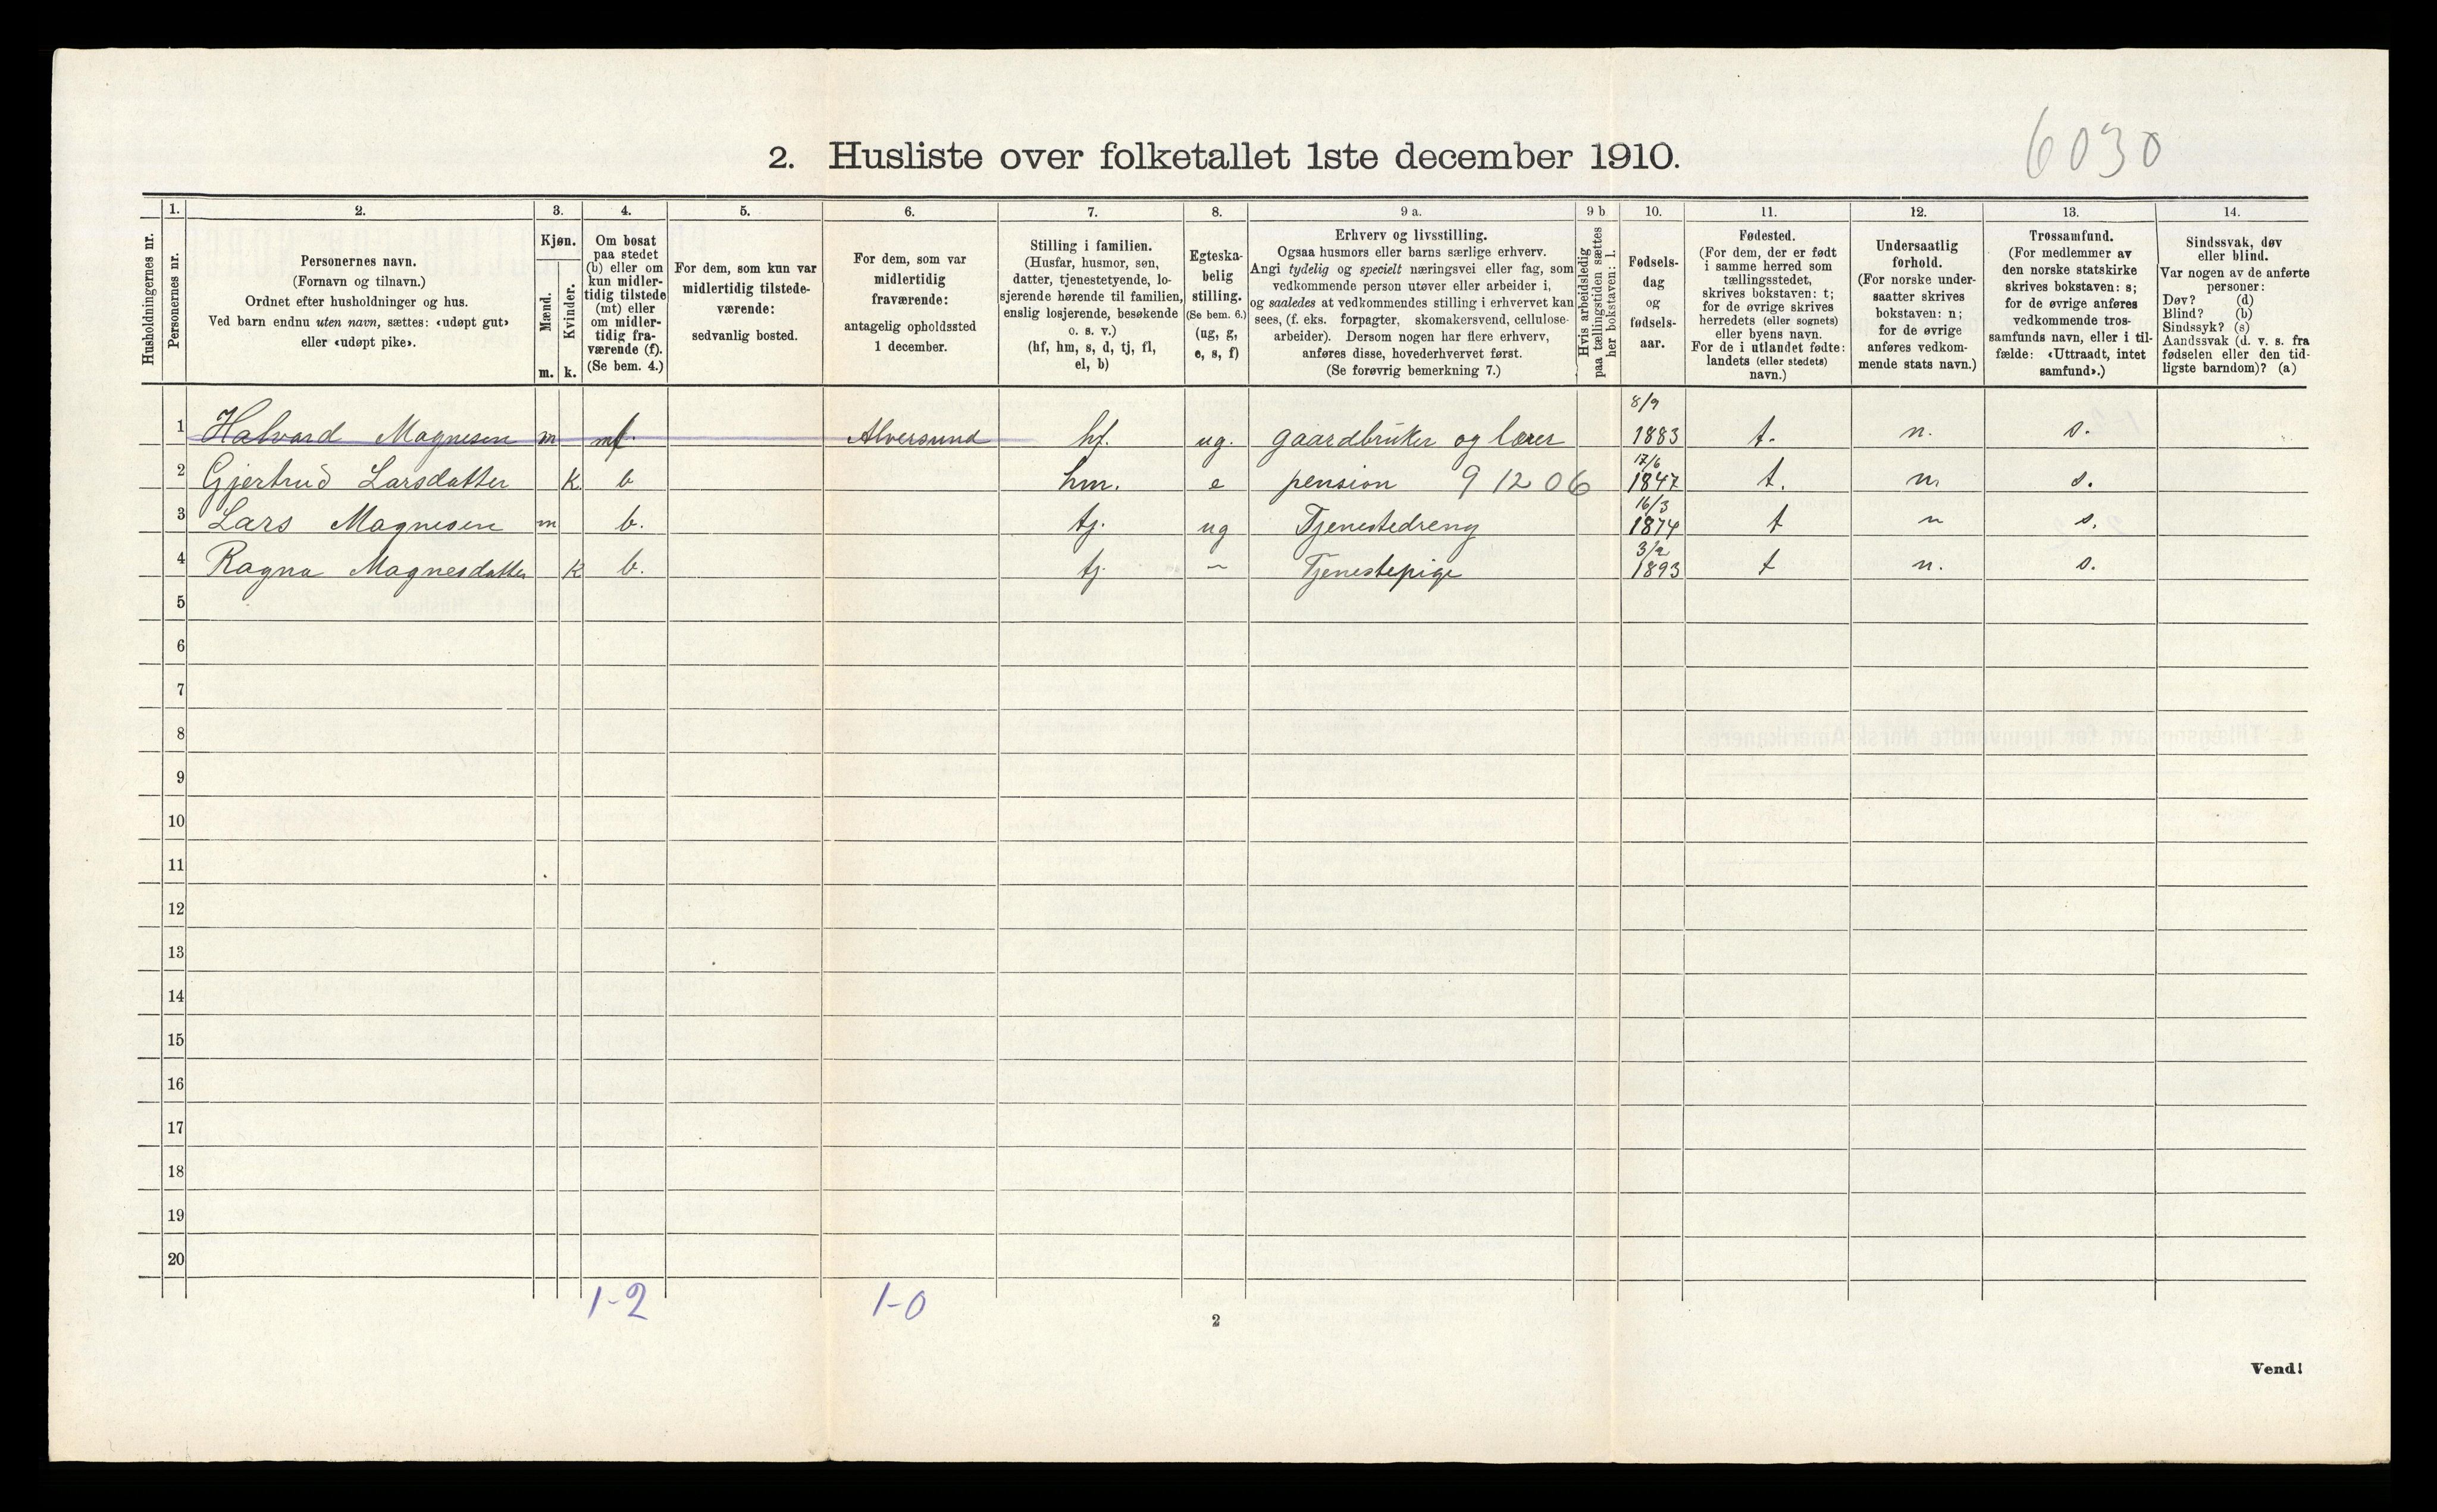 6030
2. Husliste over folketallet 1ste december 1910.
Husholdningernes nr.
1.
Personernes nr.
2.
Personernes navn.
(Fornavn og tilnavn.)
Ordnet efter husholdninger og hus.
Ved barn endnu uten navn, sættes: «udøpt gut»
eller «udøpt pike».
3.
Kjøn.
Mænd.
Kvinder.
m. k.
4.
Om bosat
paa stedet
(b) eller om
kun midler-
tidig tilstede
(mt) eller
om midler-
tidig fra-
værende (f).
(Se bem. 4.)
5.
For dem, som kun var
midlertidig tilstede-
værende:
sedvanlig bosted.
6.
For dem, som var
midlertidig
fraværende:
antagelig opholdssted
1 december.
7.
Stilling i familien.
(Husfar, husmor, søn,
datter, tjenestetyende, lo-
sjerende hørende til familien,
enslig losjerende, besøkende
o. s. v.)
(hf, hm, s, d, tj, fl,
el, b)
8.
Egteska-
belig
stilling.
(Se bem. 6.)
(ug, g,
e, s, f)
9 a.
Erhverv og livsstilling.
Ogsaa husmors eller barns særlige erhverv.
Angi tydelig og specielt næringsvei eller fag, som
vedkommende person utøver eller arbeider i,
og saaledes at vedkommendes stilling i erhvervet kan
sees, (f. eks. forpagter, skomakersvend, cellulose-
arbeider). Dersom nogen har flere erhverv,
anføres disse, hovederhvervet først.
(Se forøvrig bemerkning 7.)
9 b
Hvis arbeidsledig
paa tællingstiden sættes
her bokstaven: l.
10.
Fødsels-
dag
og
fødsels-
aar.
11.
Fødested.
(For dem, der er født
i samme herred som
tællingsstedet,
skrives bokstaven: t;
for de øvrige skrives
herredets (eller sognets)
eller byens navn.
For de i utlandet fødte:
landets (eller stedets)
navn.)
12.
Undersaatlig
forhold.
(For norske under-
saatter skrives
bokstaven: n;
for de øvrige
anføres vedkom-
mende stats navn.)
13.
Trossamfund.
(For medlemmer av
den norske statskirke
skrives bokstaven: s;
for de øvrige anføres
vedkommende tros-
samfunds navn, eller i til-
fælde: «Uttraadt, intet
samfund».)
14.
Sindssvak, døv
eller blind.
Var nogen av de anførte
personer:
Døv? (d)
Blind? (b)
Sindssyk? (s)
Aandssvak (d. v. s. fra
fødselen eller den tid-
ligste barndom)? (a)
1 Halvard Magnesen m f. Alversund hf. ug. gaardbruker og lærer 8/9 1883 t. n. s.
2 Gjertrud Larsdatter k b hm. e pension 9 12 06 17/6 1847 t. n. s.
3 Lars Magnesen m b. tj. ug Tjenestedreng 16/3 1874 t n s.
4 Ragna Magnesdatter k b. tj. ~ Tjenestepige 3/2 1893 t n. s.
5
6
7
8
9
10
11
12
13
14
15
16
17
18
19
20
1-2 1-0
2
Vend!